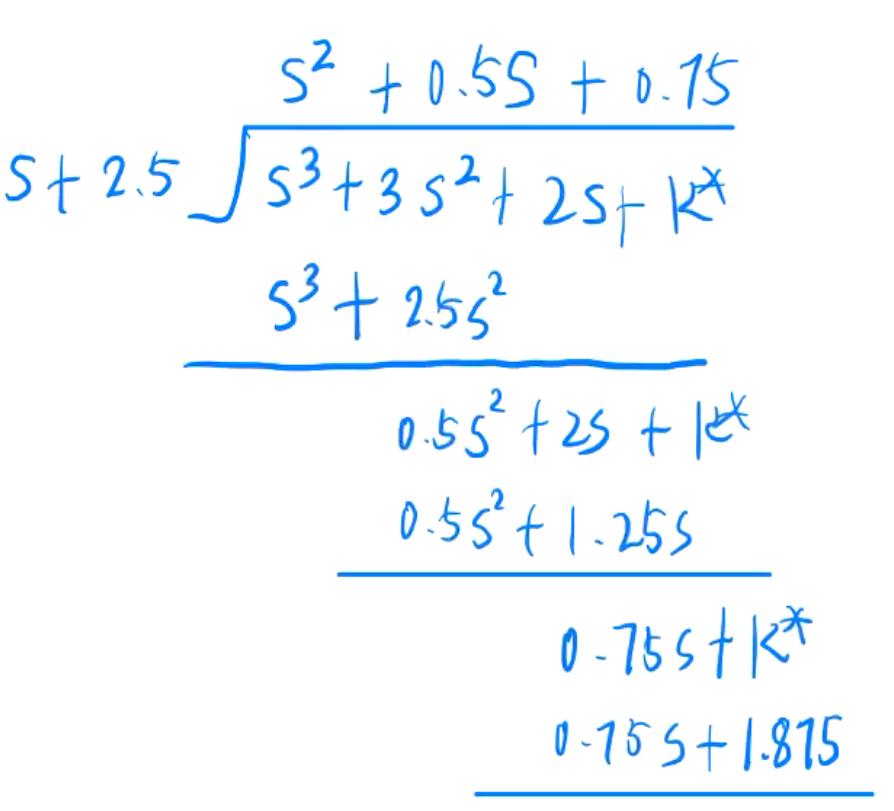 s² + 0.5s + 0.75
s + 2.5 √ s³ + 3s² + 2s + k*
s³ + 2.5s²
0.5s² + 2s + k*
0.5s² + 1.25s
0.75s + k*
0.75s + 1.875